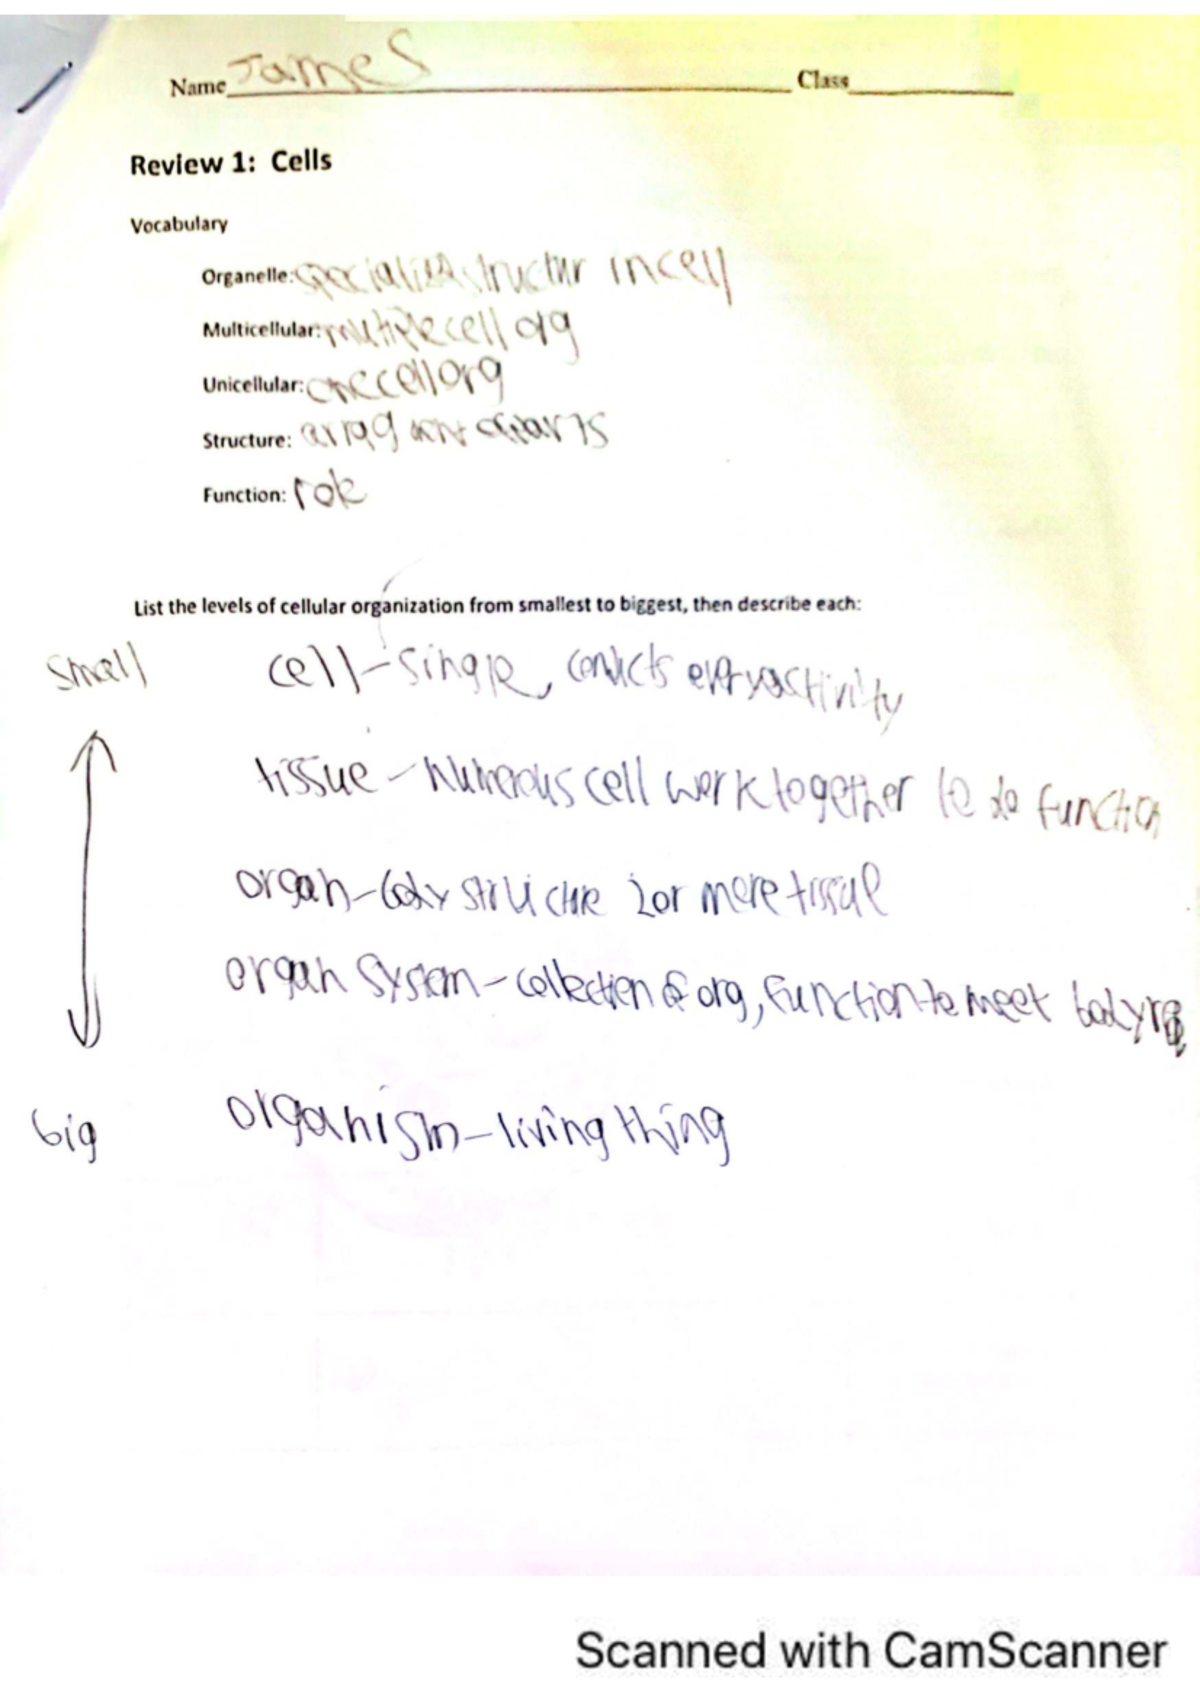 Name James Class
Review 1: Cells
Vocabulary
Organelle: structur in cell
Multicellular: multiple cell org
Unicellular: one cell org
Structure: of parts
Function: role
List the levels of cellular organization from smallest to biggest, then describe each:
Small cell - single, activity
tissue - numerous cell work together to do function
organ - body structure 2 or more tissue
organ system - collection of org, function to meet body
big organism - living thing
Scanned with CamScanner